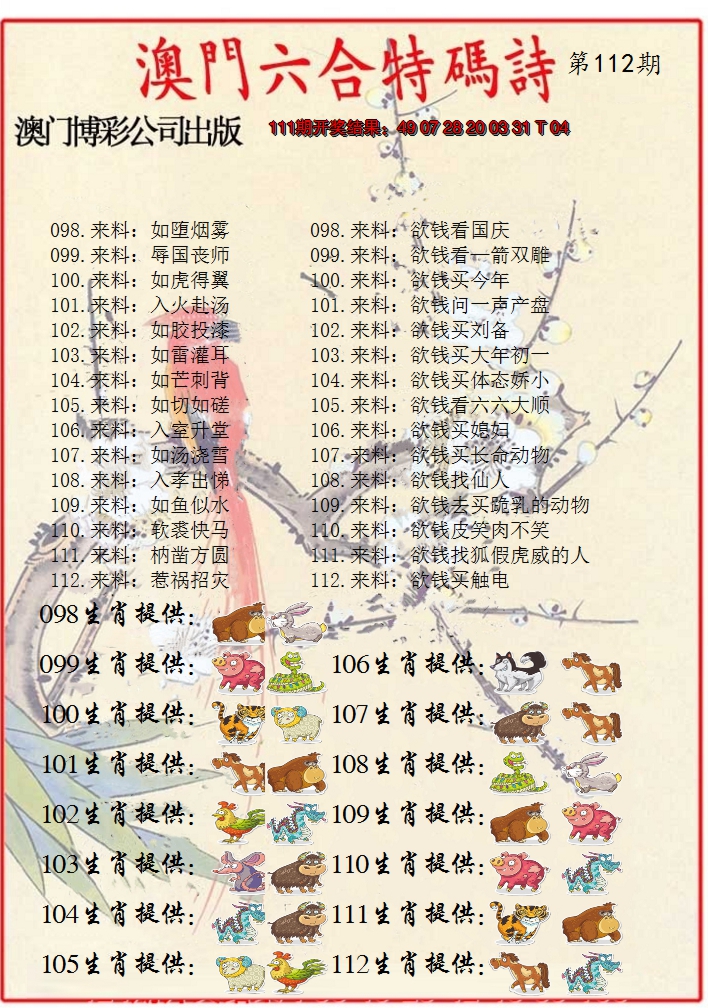 澳門六合特碼詩 第112期
澳门博彩公司出版 111期开奖结果：49 07 28 20 03 31 T 04
098.来料：如堕烟雾 098.来料：欲钱看国庆
099.来料：辱国丧师 099.来料：欲钱看一箭双雕
100.来料：如虎得翼 100.来料：欲钱买今年
101.来料：入火赴汤 101.来料：欲钱问一声产盘
102.来料：如胶投漆 102.来料：欲钱买刘备
103.来料：如雷灌耳 103.来料：欲钱买大年初一
104.来料：如芒刺背 104.来料：欲钱买体态娇小
105.来料：如切如磋 105.来料：欲钱看六六大顺
106.来料：入室升堂 106.来料：欲钱买媳妇
107.来料：如汤浇雪 107.来料：欲钱买长命动物
108.来料：入孝出悌 108.来料：欲钱找仙人
109.来料：如鱼似水 109.来料：欲钱去买跪乳的动物
110.来料：软裘快马 110.来料：欲钱皮笑肉不笑
111.来料：枘凿方圆 111.来料：欲钱找狐假虎威的人
112.来料：惹祸招灾 112.来料：欲钱买触电
098生肖提供：
099生肖提供： 106生肖提供：
100生肖提供： 107生肖提供：
101生肖提供： 108生肖提供：
102生肖提供： 109生肖提供：
103生肖提供： 110生肖提供：
104生肖提供： 111生肖提供：
105生肖提供： 112生肖提供：